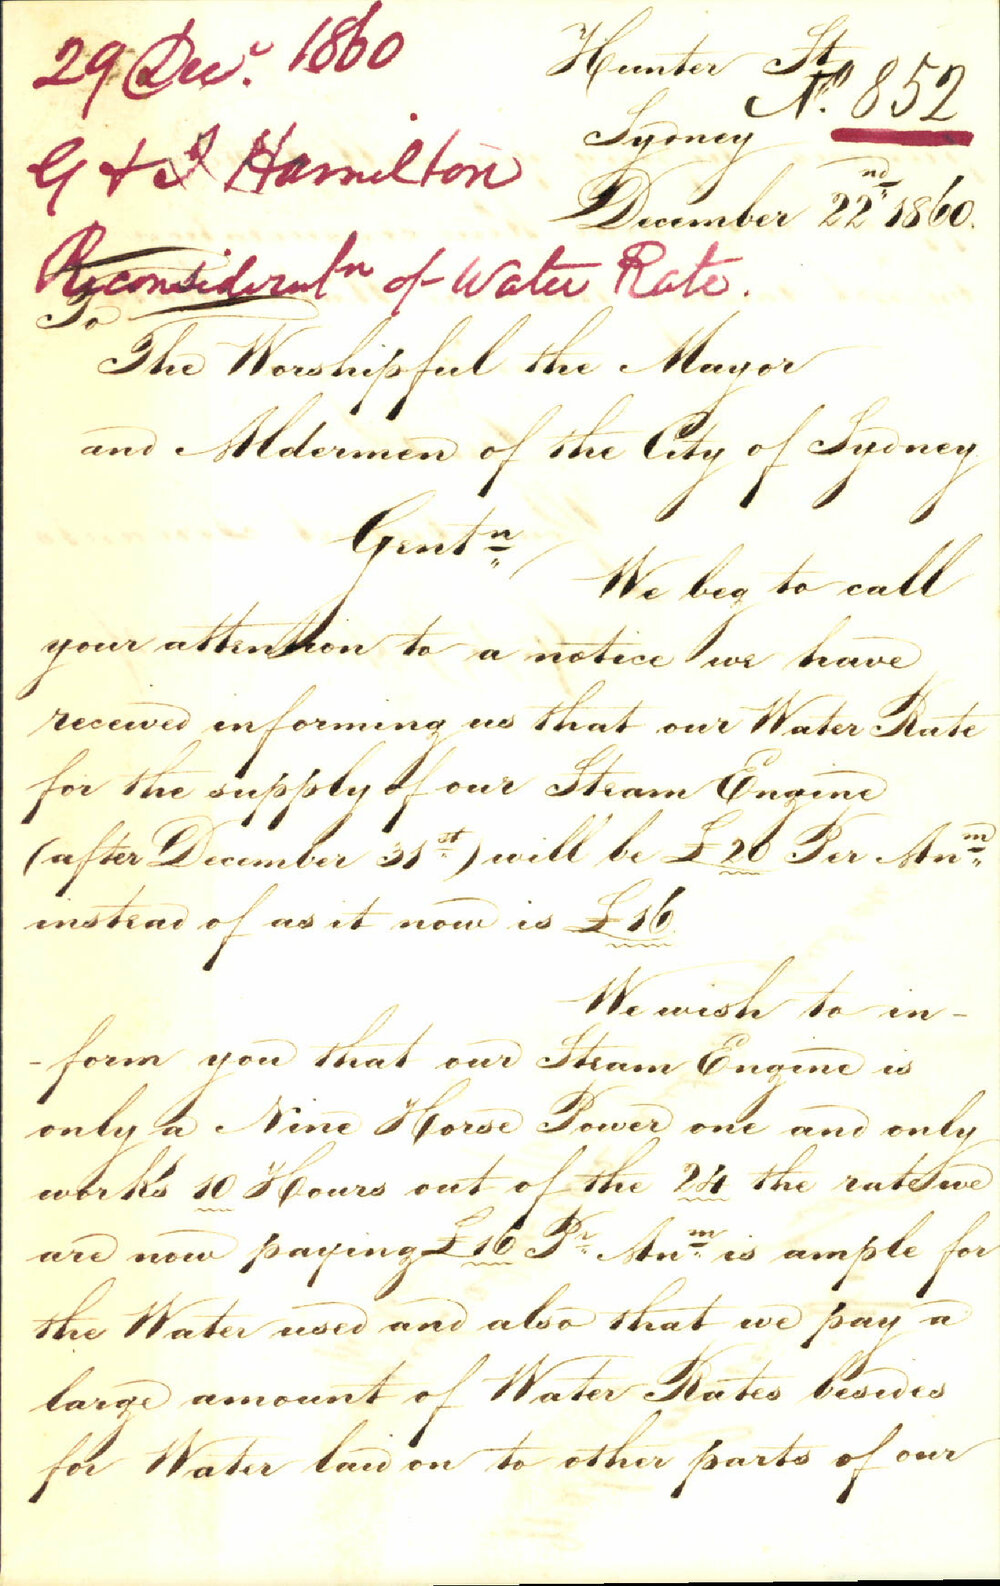 29 Decr. 1860
G & J Hamilton
Reconsideratn of Water Rate.
Hunter St
No. 852
Sydney
December 22nd 1860.
To
The Worshipful the Mayor
and Aldermen of the City of Sydney
Gentn
We beg to call
your attention to a notice we have
received informing us that our Water Rate
for the supply of our Steam Engine
(after December 31st) will be £20 Per Anm
instead of as it now is £16
We wish to in-
-form you that our Steam Engine is
only a Nine Horse Power one and only
works 10 Hours out of the 24 the rate we
are now paying £16 Pr Anm is ample for
the Water used and also that we pay a
large amount of Water Rates besides
for Water laid on to other parts of our